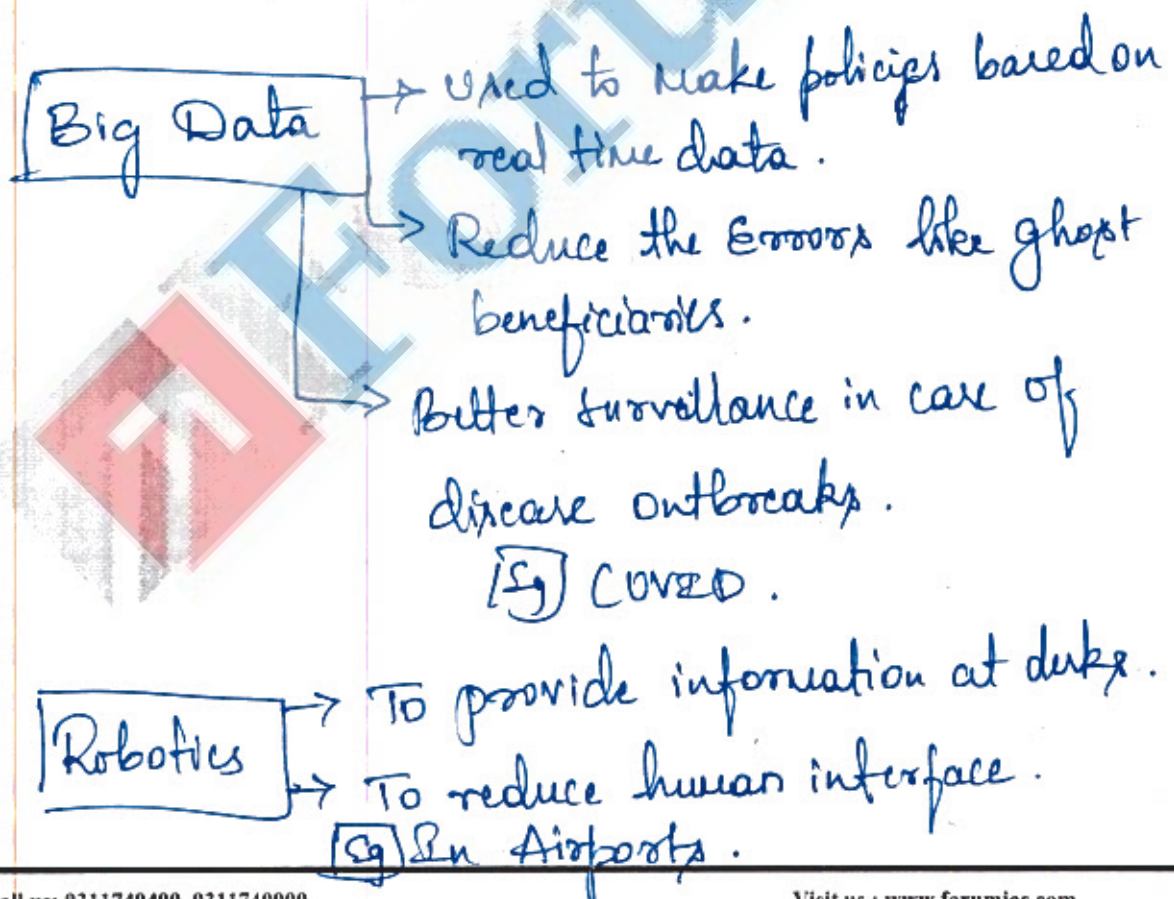 Big Data → Used to make policies based on
real time data.
→ Reduce the Errors like ghost
beneficiaries.
→ Better survellance in case of
disease outbreaks.
Eg COVID.
Robotics → To provide information at desks.
→ To reduce human interface.
Eg In Airports.
Visit us : www.forumias.com